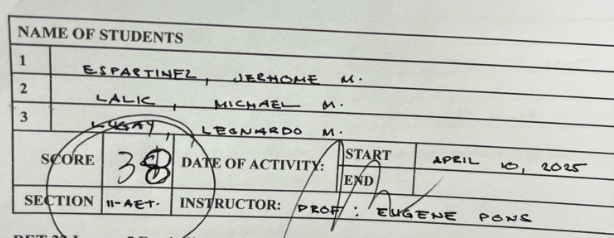 NAME OF STUDENTS
1 ESPARTINEZ, JERHOME M.
2 LALIC, MICHAEL M.
3 LUGAY, LEONARDO M.
SCORE 38 DATE OF ACTIVITY: START APRIL 10, 2025
END
SECTION 11-AET. INSTRUCTOR: PROF: EUGENE PONS